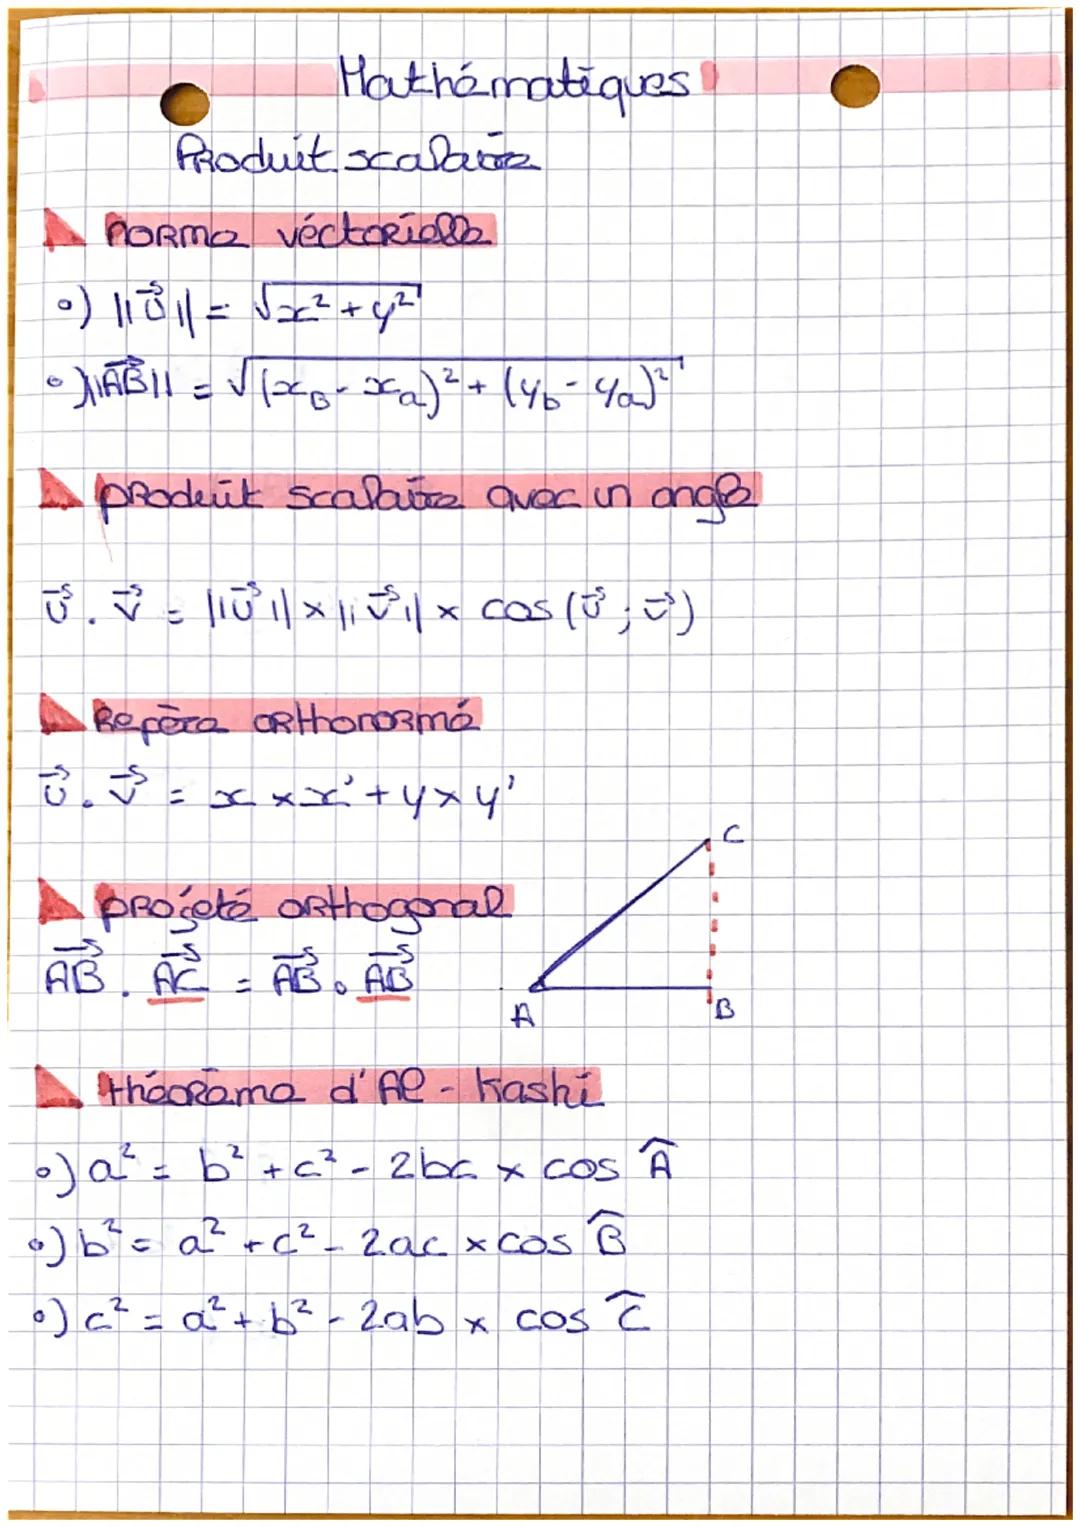 Mathématiques
Produit scalaire
norme véctorielle
•) ||u⃗|| = √(x² + y²)
•) ||AB⃗|| = √((x_B - x_a)² + (y_b - y_a)²)
produit scalaire avec un angle
u⃗ . v⃗ = ||u⃗|| × ||v⃗|| × cos (u⃗ ; v⃗)
Repère orthonormé
u⃗ . v⃗ = x × x' + y × y'
projeté orthogonal
AB⃗ . AC⃗ = AB⃗ . AB⃗
C
A
B
théorème d'Al-Kashi
•) a² = b² + c² - 2bc × cos Â
•) b² = a² + c² - 2ac × cos B̂
•) c² = a² + b² - 2ab × cos Ĉ